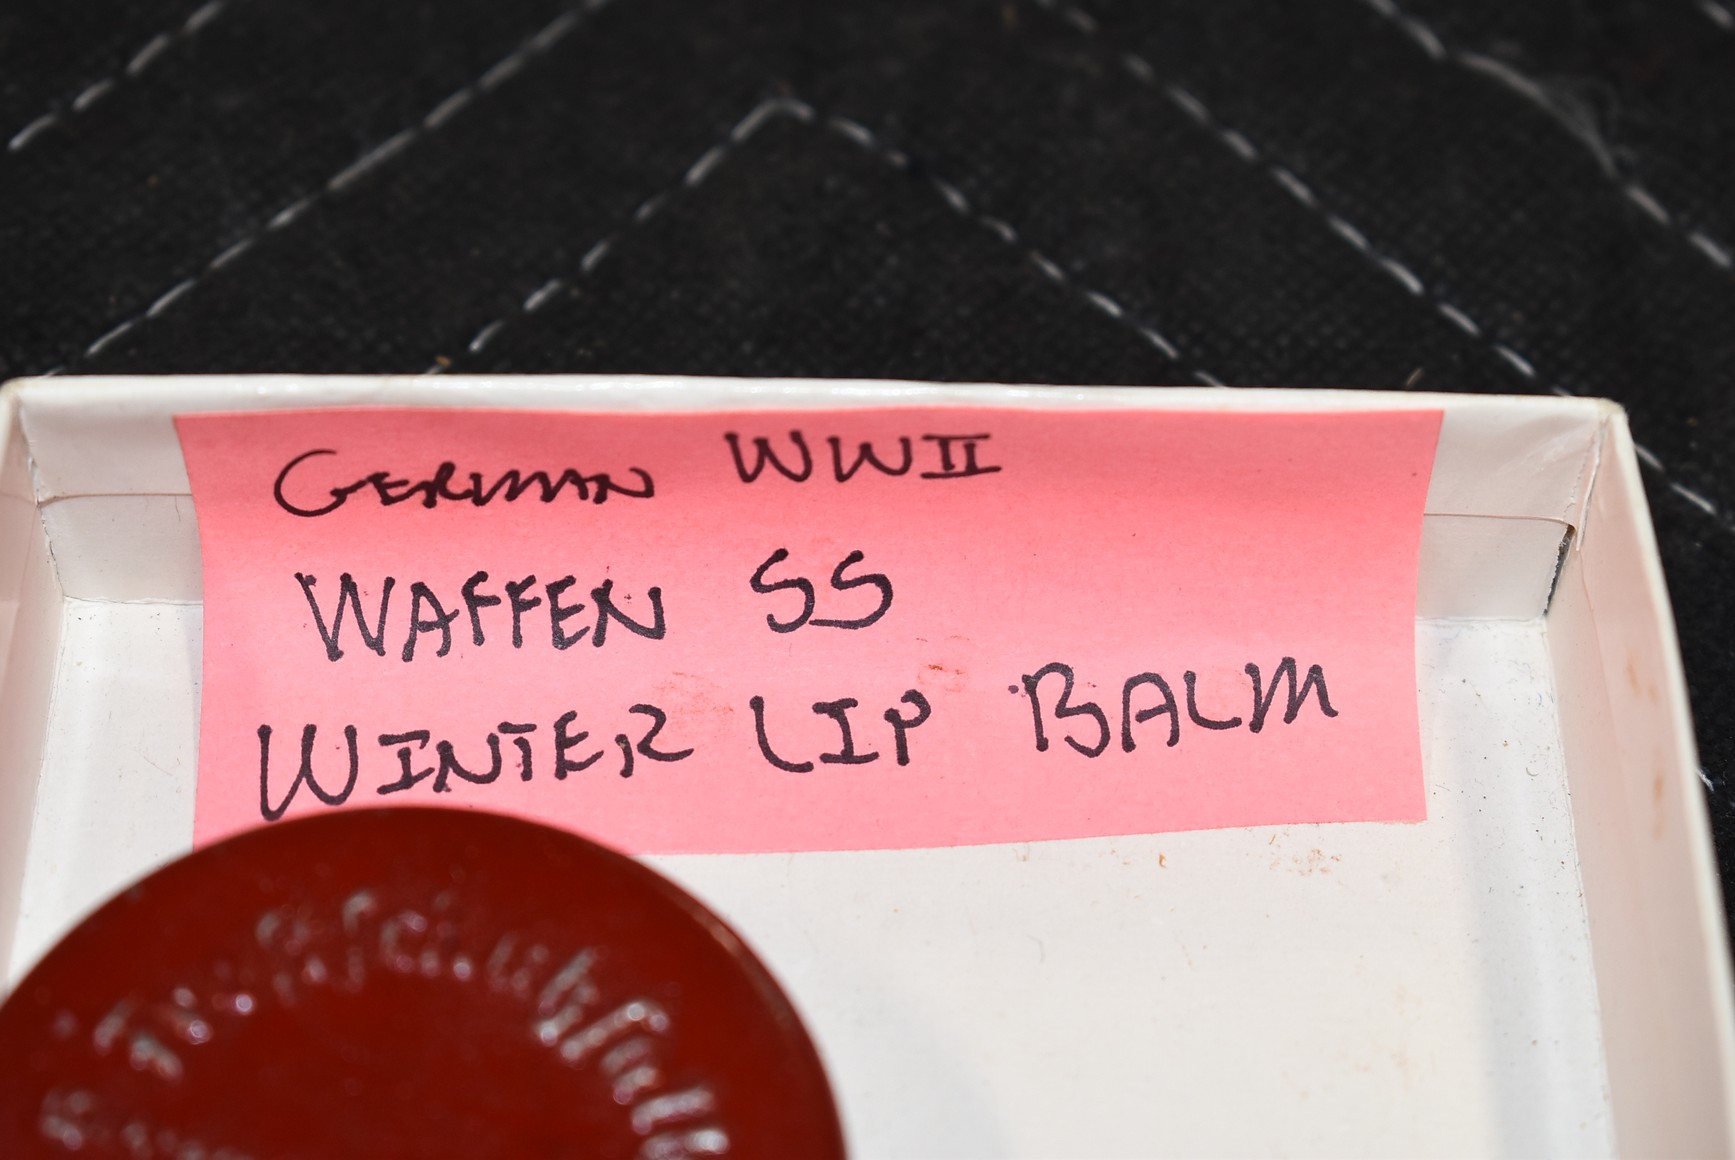 GERMAN WWII
WAFFEN SS
WINTER LIP BALM